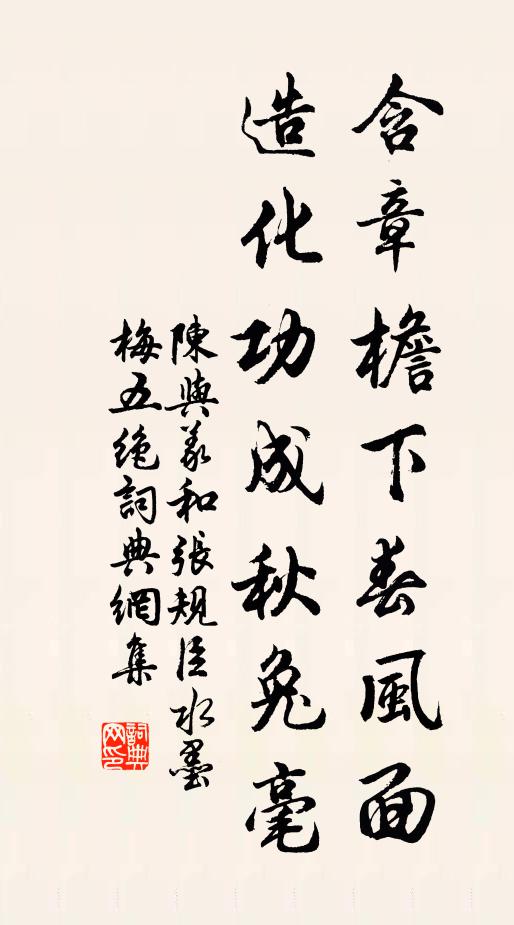 含章檐下春風面
造化功成秋兔毫
陳與義和張規臣水墨
梅五絶詞典網集
詞典网印